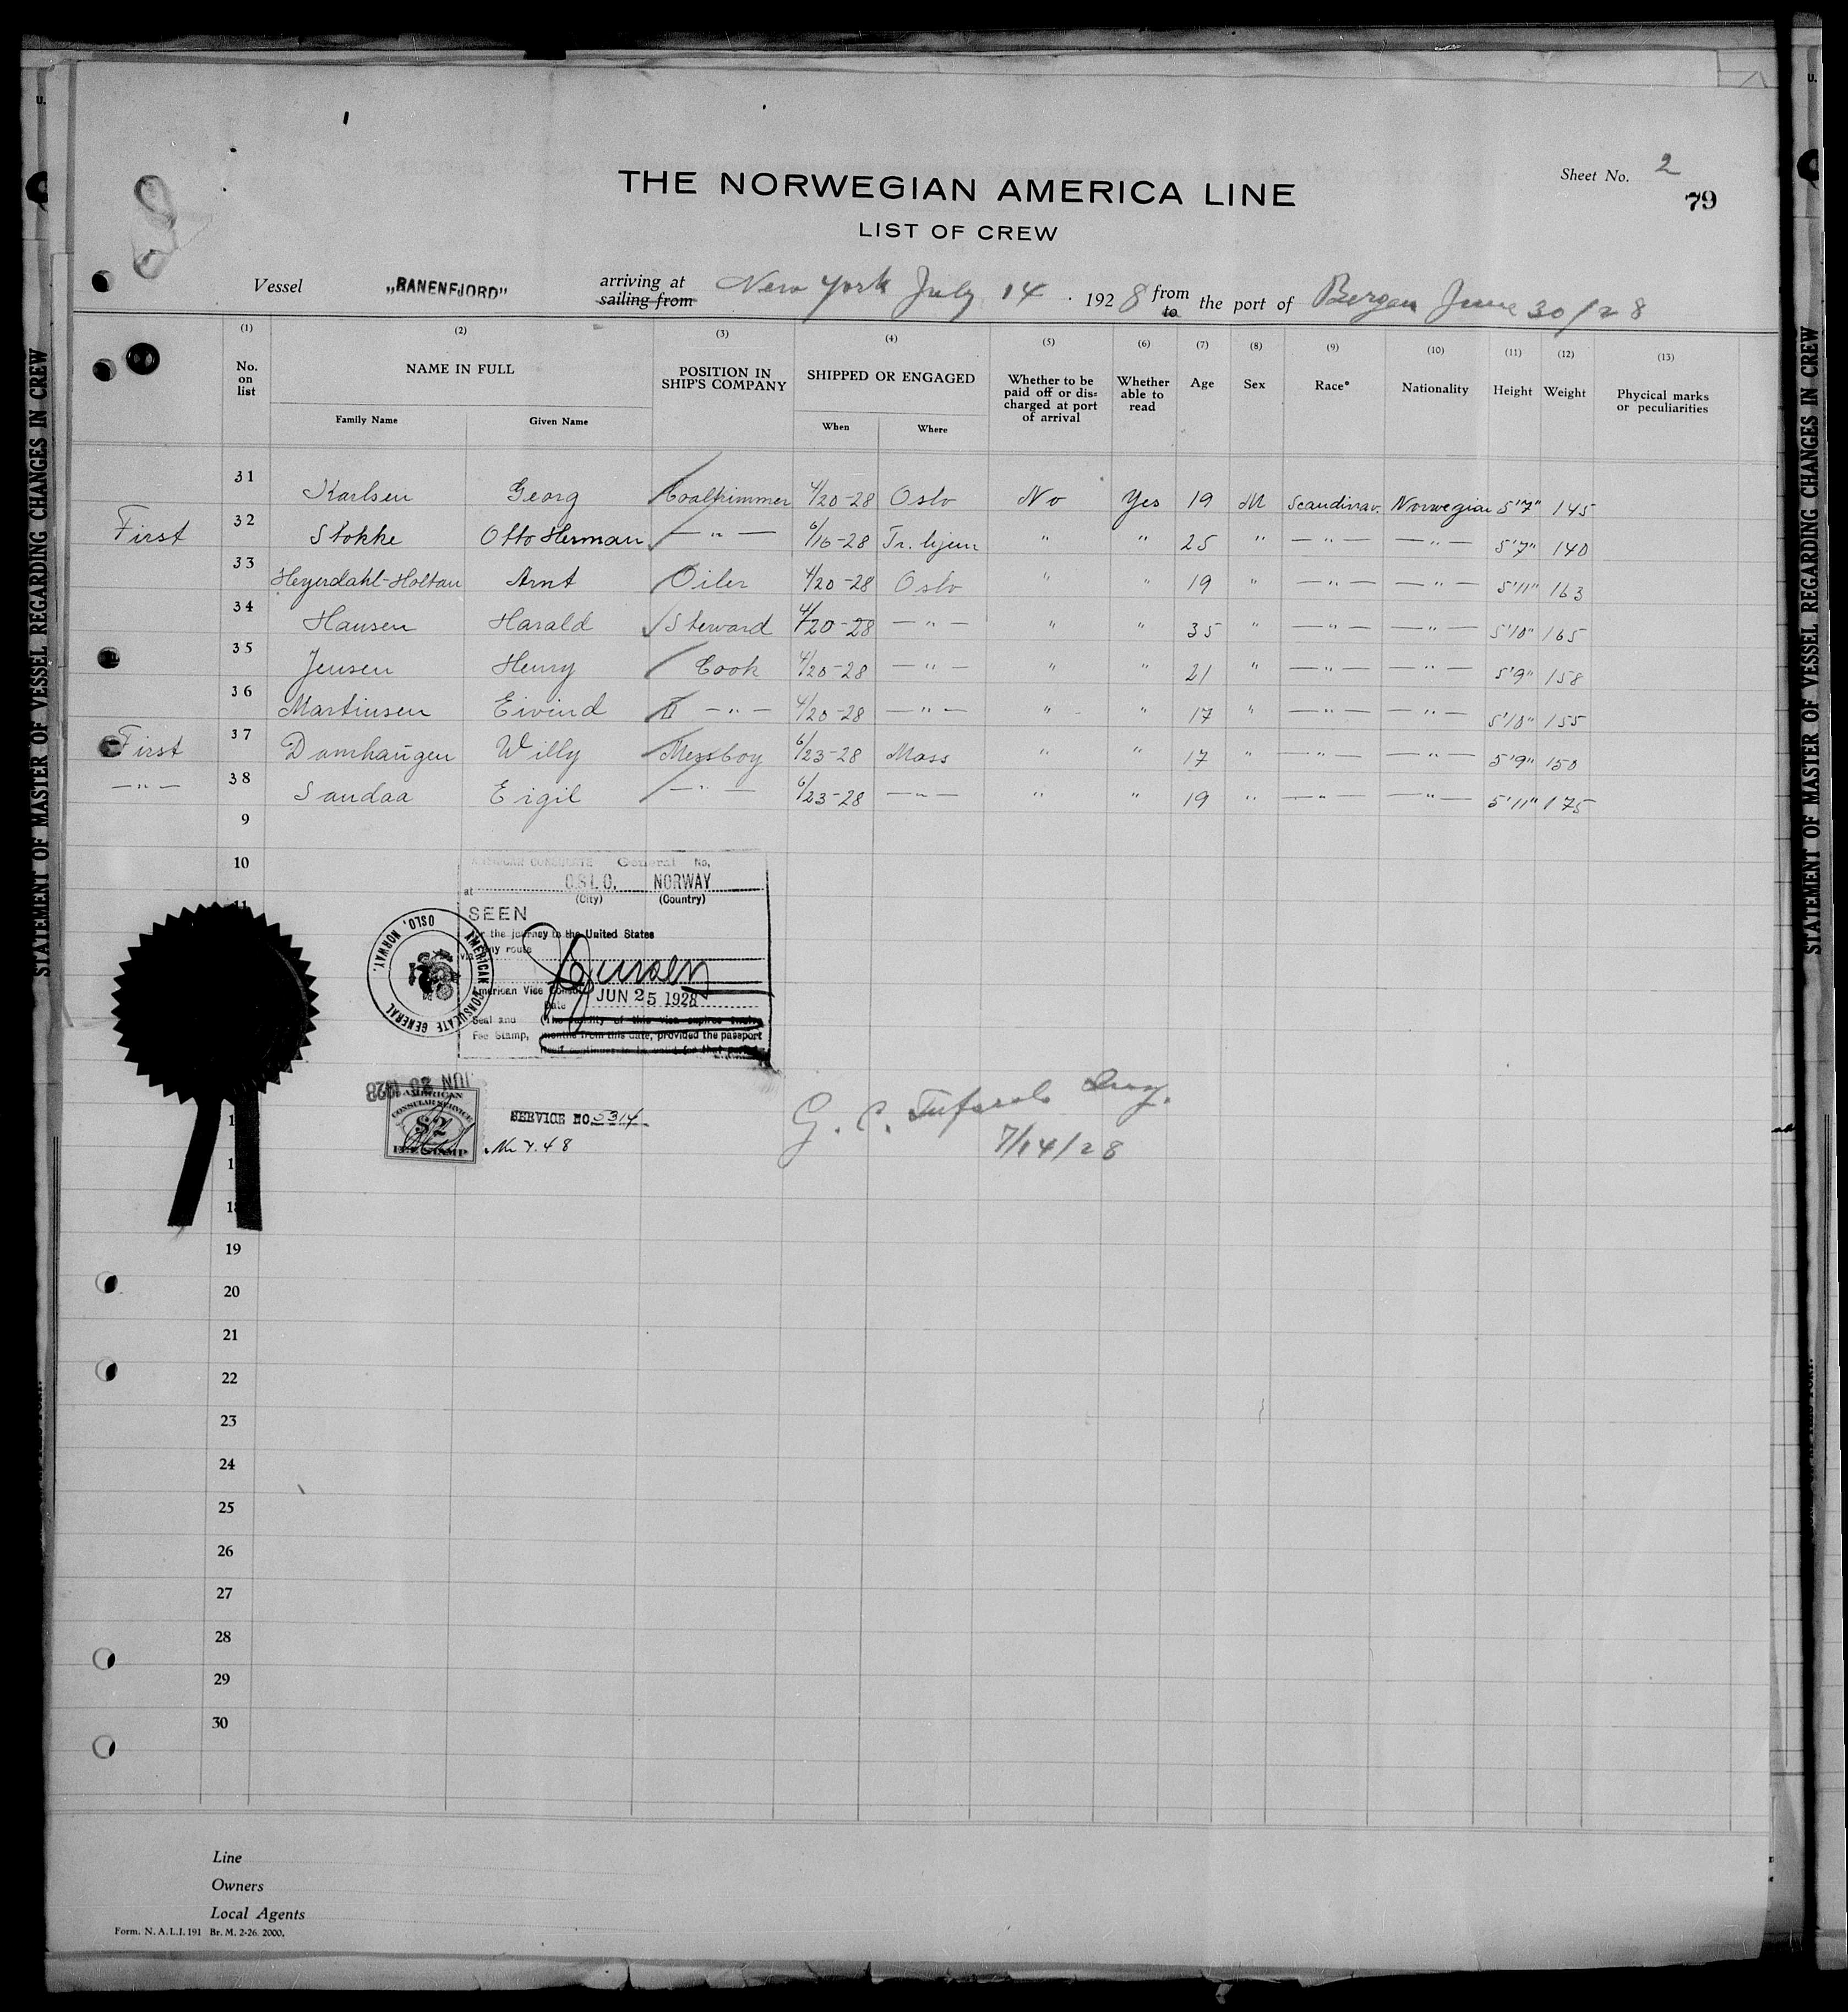 Sheet No. 2
79
THE NORWEGIAN AMERICA LINE
LIST OF CREW
Vessel „RANENFJORD" arriving at sailing from New York July 14. 1928 from to the port of Bergen June 30/28
(1) (2) (3) (4) (5) (6) (7) (8) (9) (10) (11) (12) (13)
No. on list NAME IN FULL POSITION IN SHIP'S COMPANY SHIPPED OR ENGAGED Whether to be paid off or dis= charged at port of arrival Whether able to read Age Sex Race* Nationality Height Weight Phycical marks or peculiarities
Family Name Given Name When Where
31 Karlsen Georg Coaltrimmer 4/20-28 Oslo No Yes 19 M Scandinav. Norwegian 5'7" 145
First 32 Stokke Otto Herman — " — 6/16-28 Tr.hjem " " 25 " — " — — " — 5'7" 140
33 Heyerdahl-Holtan Arnt Oiler 4/20-28 Oslo " " 19 " — " — — " — 5'11" 163
34 Hansen Harald Steward 4/20-28 — " — " " 35 " — " — — " — 5'10" 165
35 Jensen Henry Cook 4/20-28 — " — " " 21 " — " — — " — 5'9" 158
36 Martinsen Eivind II — " — 4/20-28 — " — " " 17 " — " — — " — 5'10" 155
First 37 Damhaugen Willy Messboy 6/23-28 Moss " " 17 " — " — — " — 5'9" 150
— " — 38 Sandaa Eigil — " — 6/23-28 — " — " " 19 " — " — — " — 5'11" 175
9
10
11
AMERICAN CONSULATE General No.
at OSLO, NORWAY
(City) (Country)
SEEN
For the journey to the United States
via any route
American Vice Consul
Date JUN 25 1928
Seal and (The validity of this visa expires twelve
Fee Stamp, months from this date, provided the passport
itself continues to be valid for that period
AMERICAN CONSULATE GENERAL OSLO, NORWAY.
JUN 25 1928
AMERICAN CONSULAR SERVICE
$2
FEE STAMP
SERVICE NO. 5314
G. C. Insp.
7/14/28
19
20
21
22
23
24
25
26
27
28
29
30
Line
Owners
Local Agents
Form. N. A. L. I. 191 Br. M. 2-26. 2000.
STATEMENT OF MASTER OF VESSEL REGARDING CHANGES IN CREW
STATEMENT OF MASTER OF VESSEL REGARDING CHANGES IN CREW